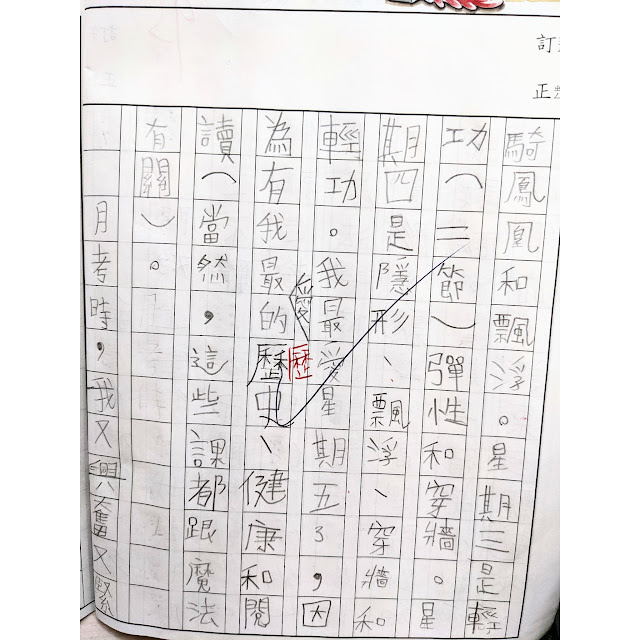 訂
正
騎鳳凰和飄浮。星期三是輕
功(二節)彈性和穿牆。星
期四是隱形、飄浮、穿牆和
輕功。我最愛星期五了,因
為有我最愛的歷史、健康和閱
歷
讀(當然,這些課都跟魔法
有關)。
月考時,我又興奮又緊